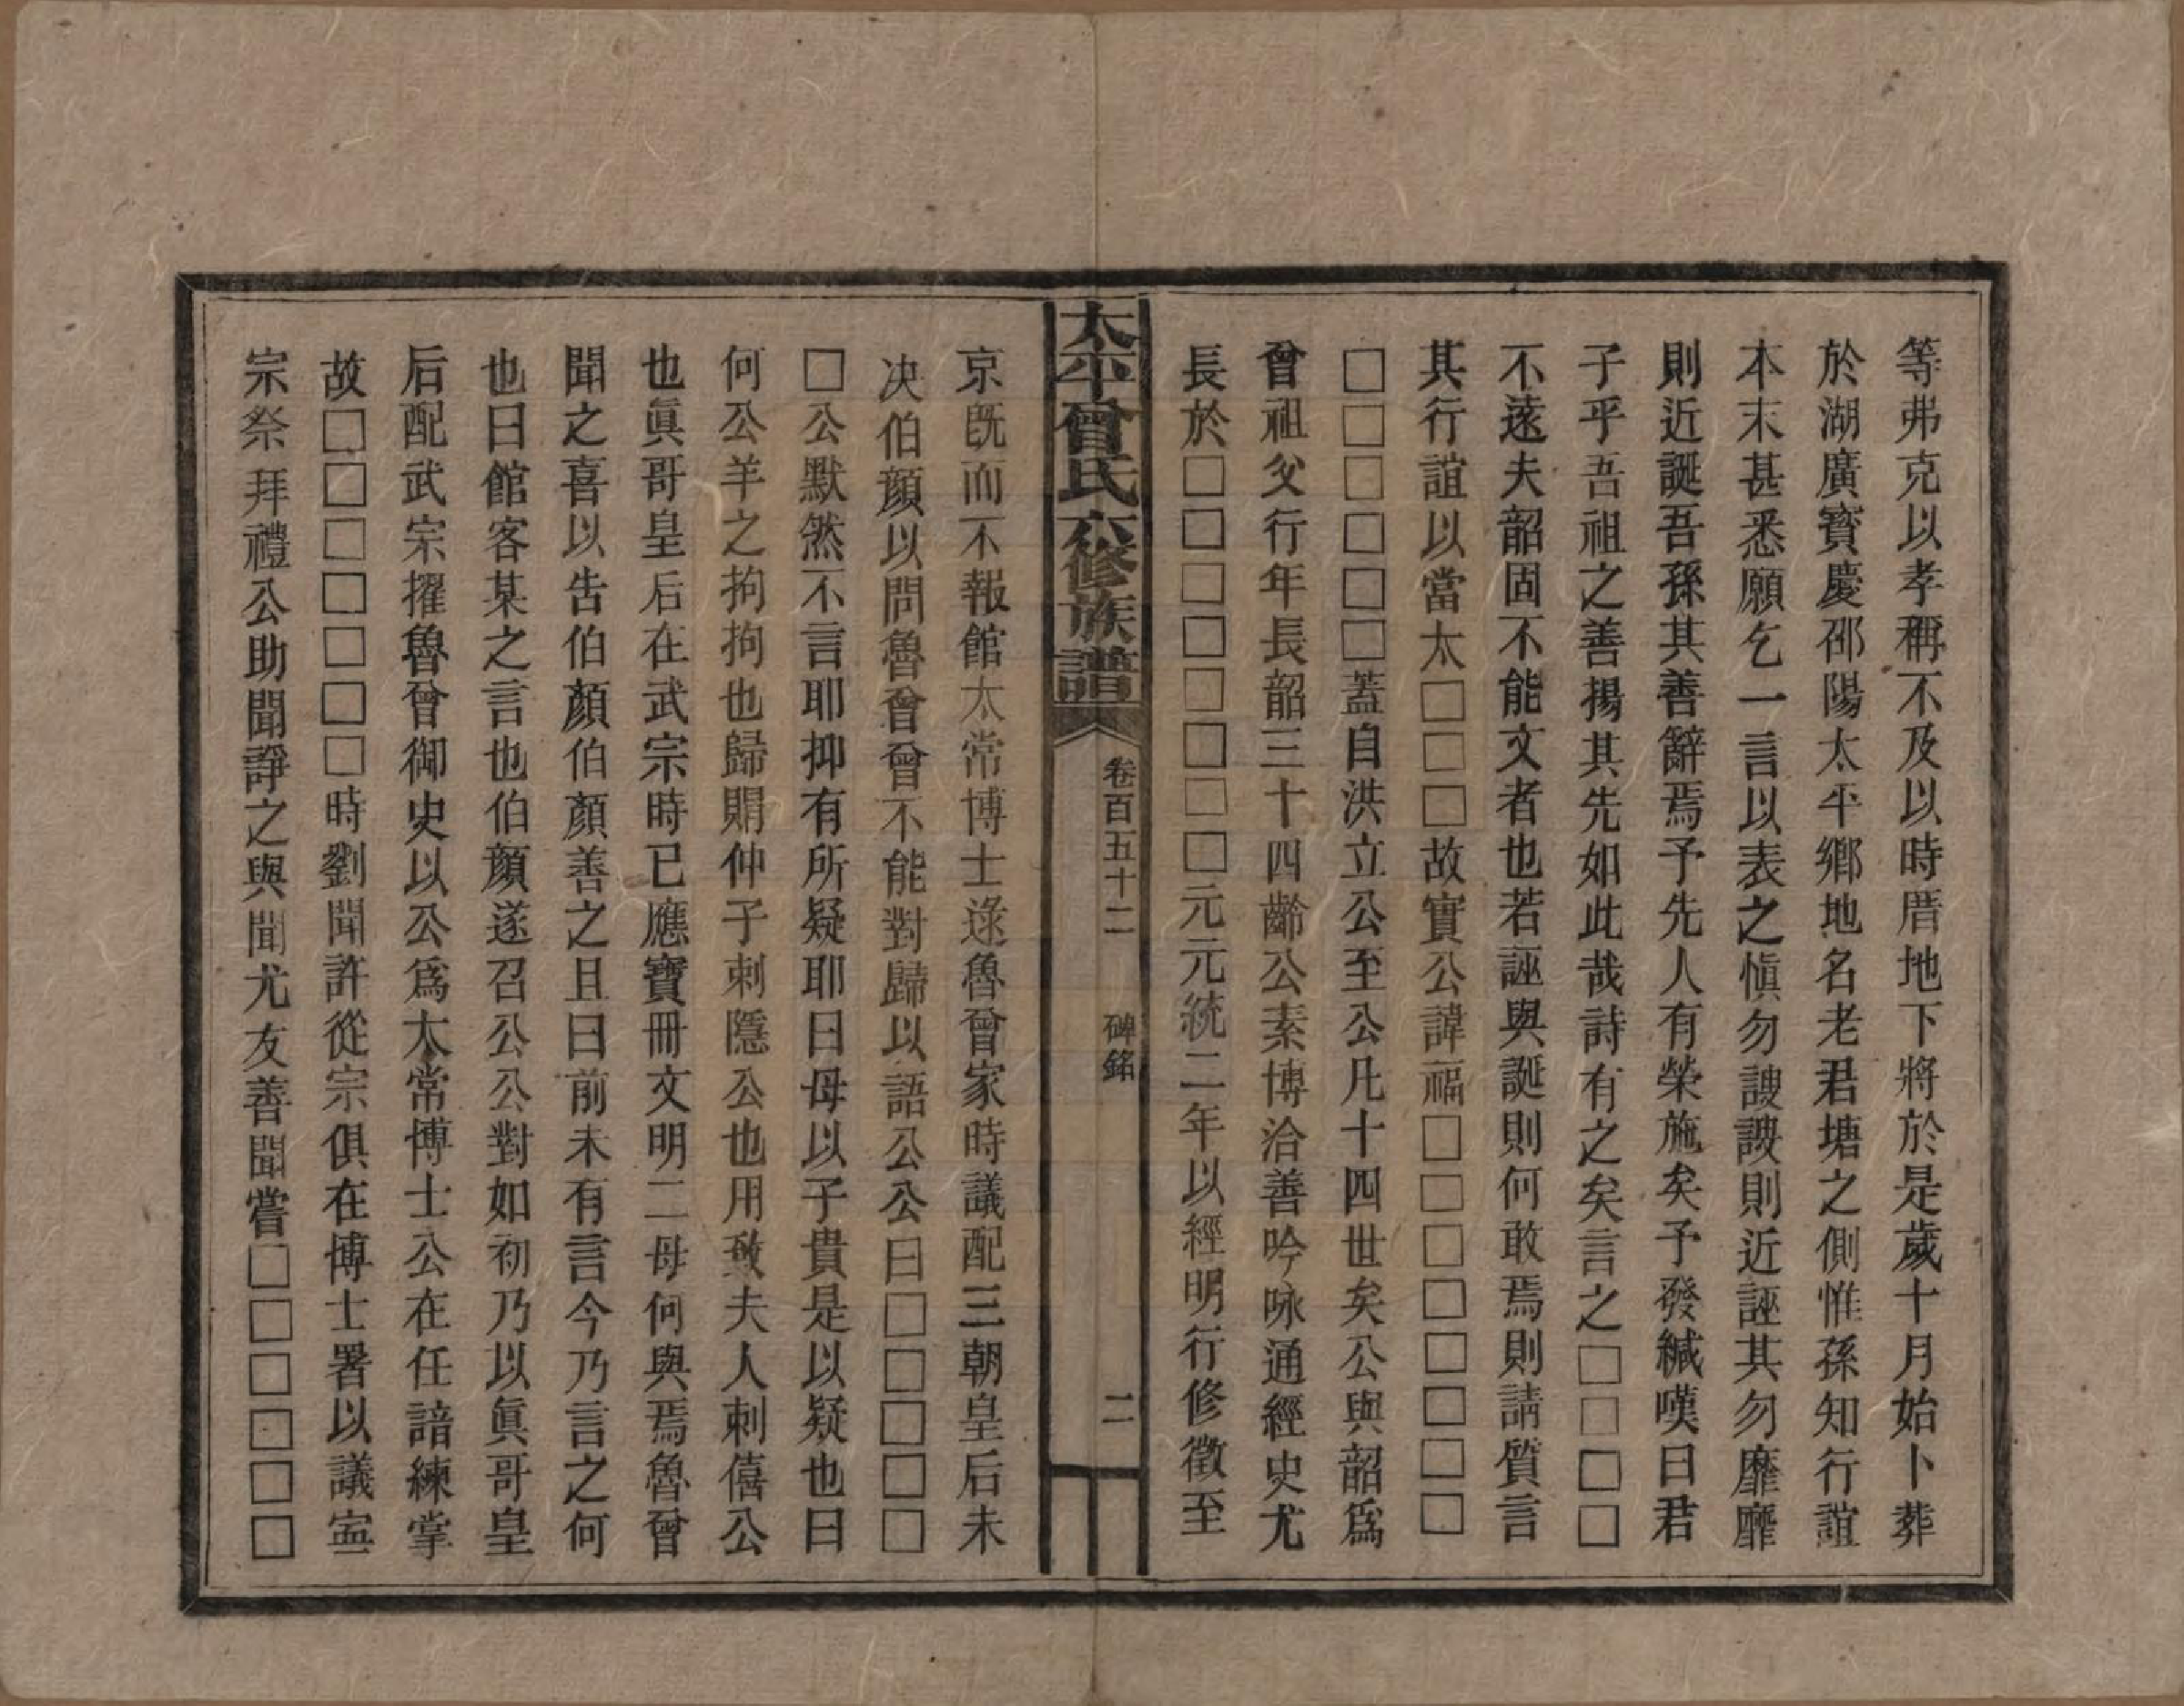 等弗克以孝稱不及以時厝地下將於是歲十月始卜葬
於湖廣寶慶邵陽太平鄉地名老君塘之側惟孫知行誼
本末甚悉願乞一言以表之愼勿謏謏則近誣其勿靡靡
則近誕吾孫其善辭焉予先人有榮施矣予發緘嘆曰君
子乎吾祖之善揚其先如此哉詩有之矣言之□□□□
不遠夫韶固不能文者也若誣與誕則何敢焉則請質言
其行誼以當太□□□故實公諱福□□□□□□□□
□□□□□□蓋自洪立公至公凡十四世矣公與韶爲
曾祖父行年長韶三十四齡公素博洽善吟咏通經史尤
長於□□□□□□□□元元統二年以經明行修徵至
太平曾氏六修族譜 卷百五十二 碑銘 二
京旣而不報館太常博士逯魯曾家時議配三朝皇后未
決伯顏以問魯曾曾不能對歸以語公公曰□□□□□
□公默然不言耶抑有所疑耶曰母以子貴是以疑也曰
何公羊之拘拘也歸賵仲子刺隱公也用致夫人刺僖公
也眞哥皇后在武宗時已應寶冊文明二母何與焉魯曾
聞之喜以吿伯顏伯顏善之且曰前未有言今乃言之何
也曰館客某之言也伯顏遂召公公對如初乃以眞哥皇
后配武宗擢魯曾御史以公爲太常博士公在任諳練掌
故□□□□□□□時劉聞許從宗俱在博士署以議宣
宗祭拜禮公助聞諍之與聞尤友善聞嘗□□□□□□